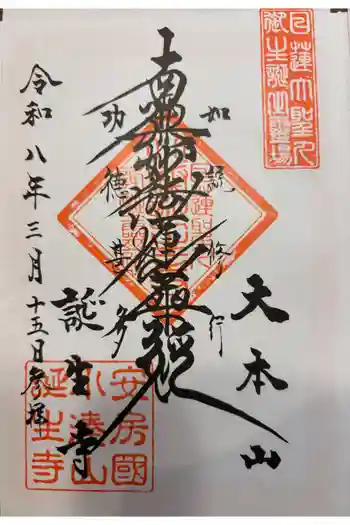 日蓮大聖人
御生誕之霊場
大本山
如説修行
南無妙法蓮華経
功徳甚多
誕生寺
令和八年三月十五日参拝
安房國
小湊山
誕生寺